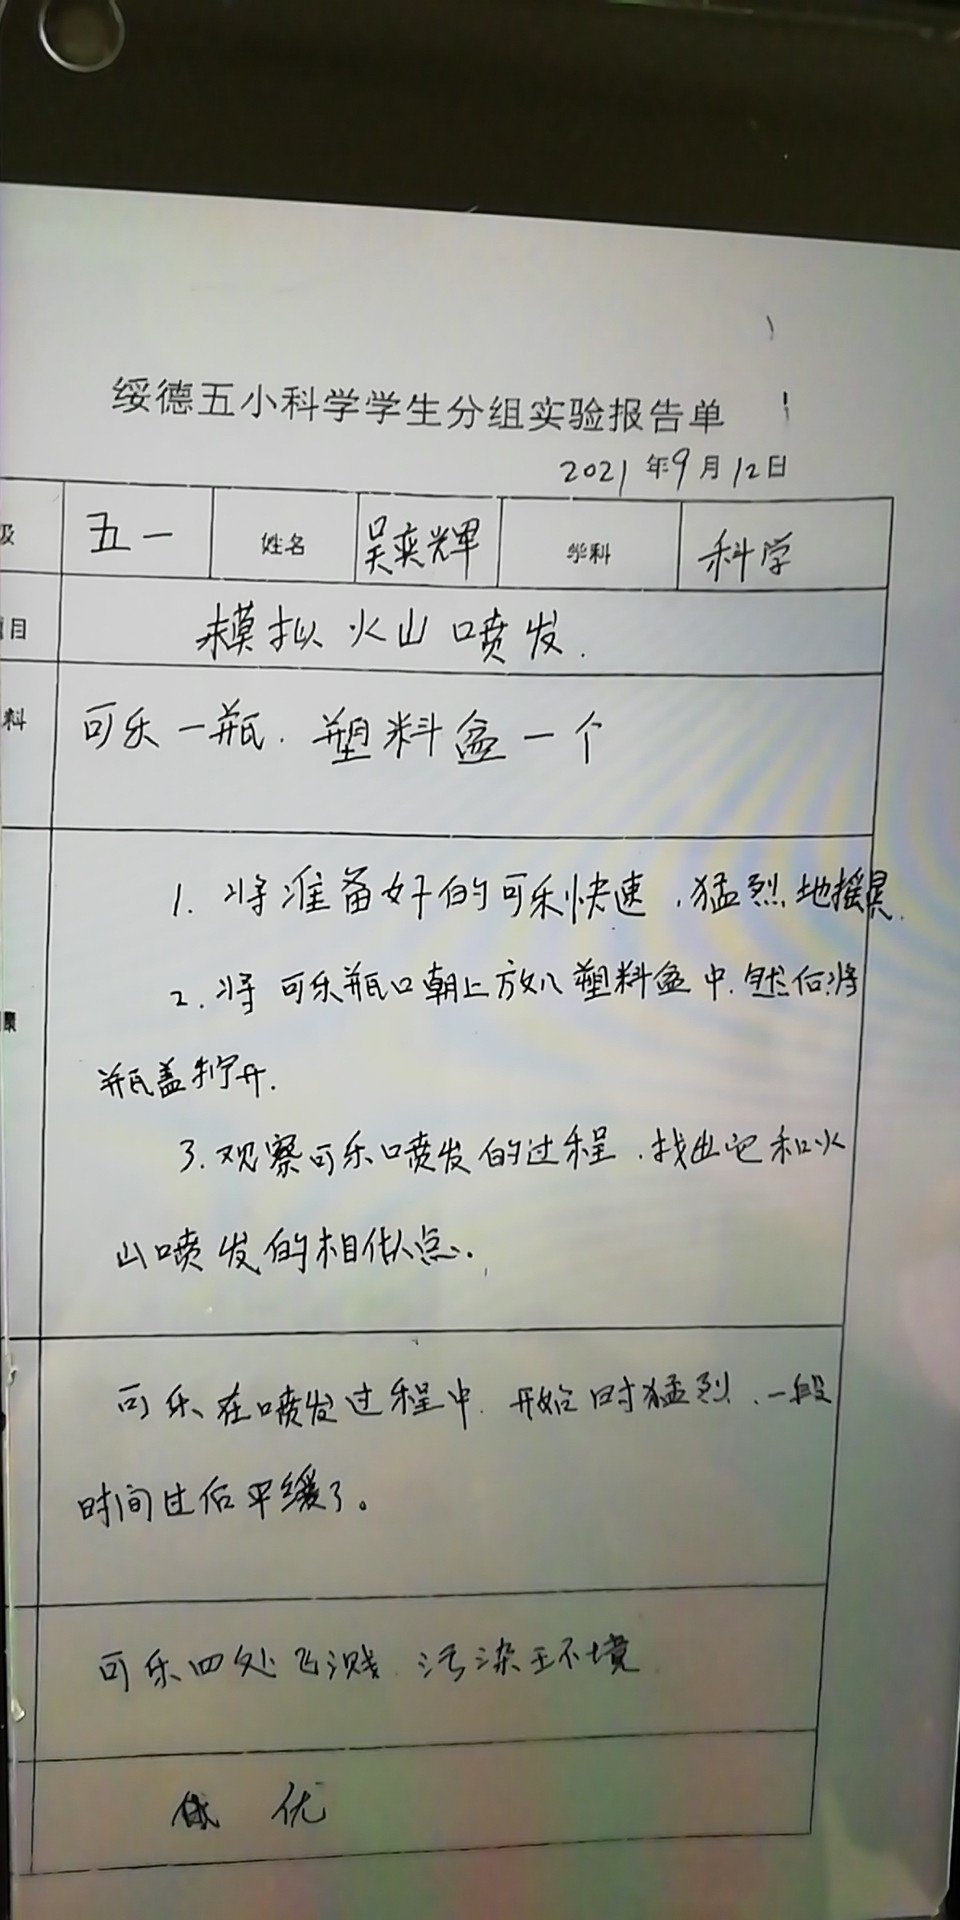 绥德五小科学学生分组实验报告单
2021年9月12日
级 五一 姓名 吴奕辉 学科 科学
目 模拟火山喷发.
料 可乐一瓶. 塑料盒一个
1. 将准备好的可乐快速,猛烈地摇晃.
2. 将可乐瓶口朝上放入塑料盒中.然后将
瓶盖拧开.
3. 观察可乐喷发的过程,找出它和火
山喷发的相似点.
可乐在喷发过程中.开始时猛烈.一段
时间过后平缓了。
可乐四处飞溅.污染环境
优